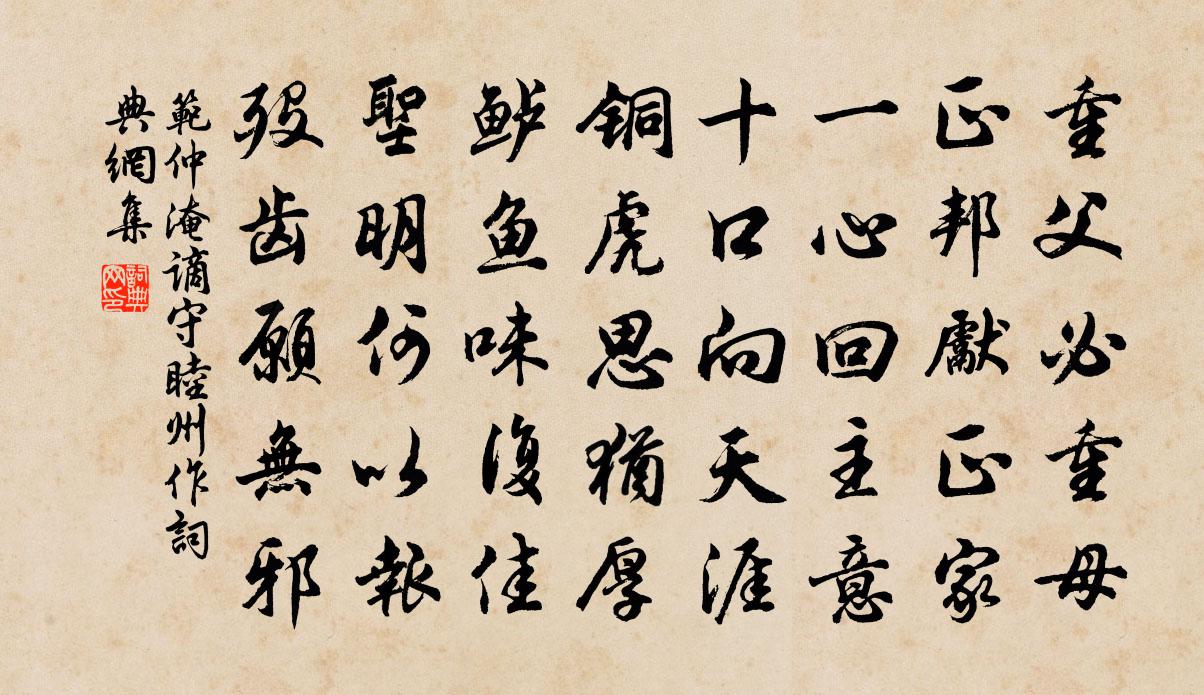 重父必重母
正邦獻正家
一心回主意
十口向天涯
銅虎思猶厚
鲈鱼味復佳
聖明何以報
歿齿願無邪
範仲淹谪守睦州作詞
典網集
詞典网印